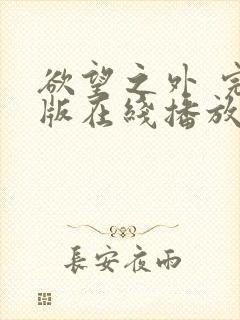 欲望之外 完
版在綫播放
長安夜雨